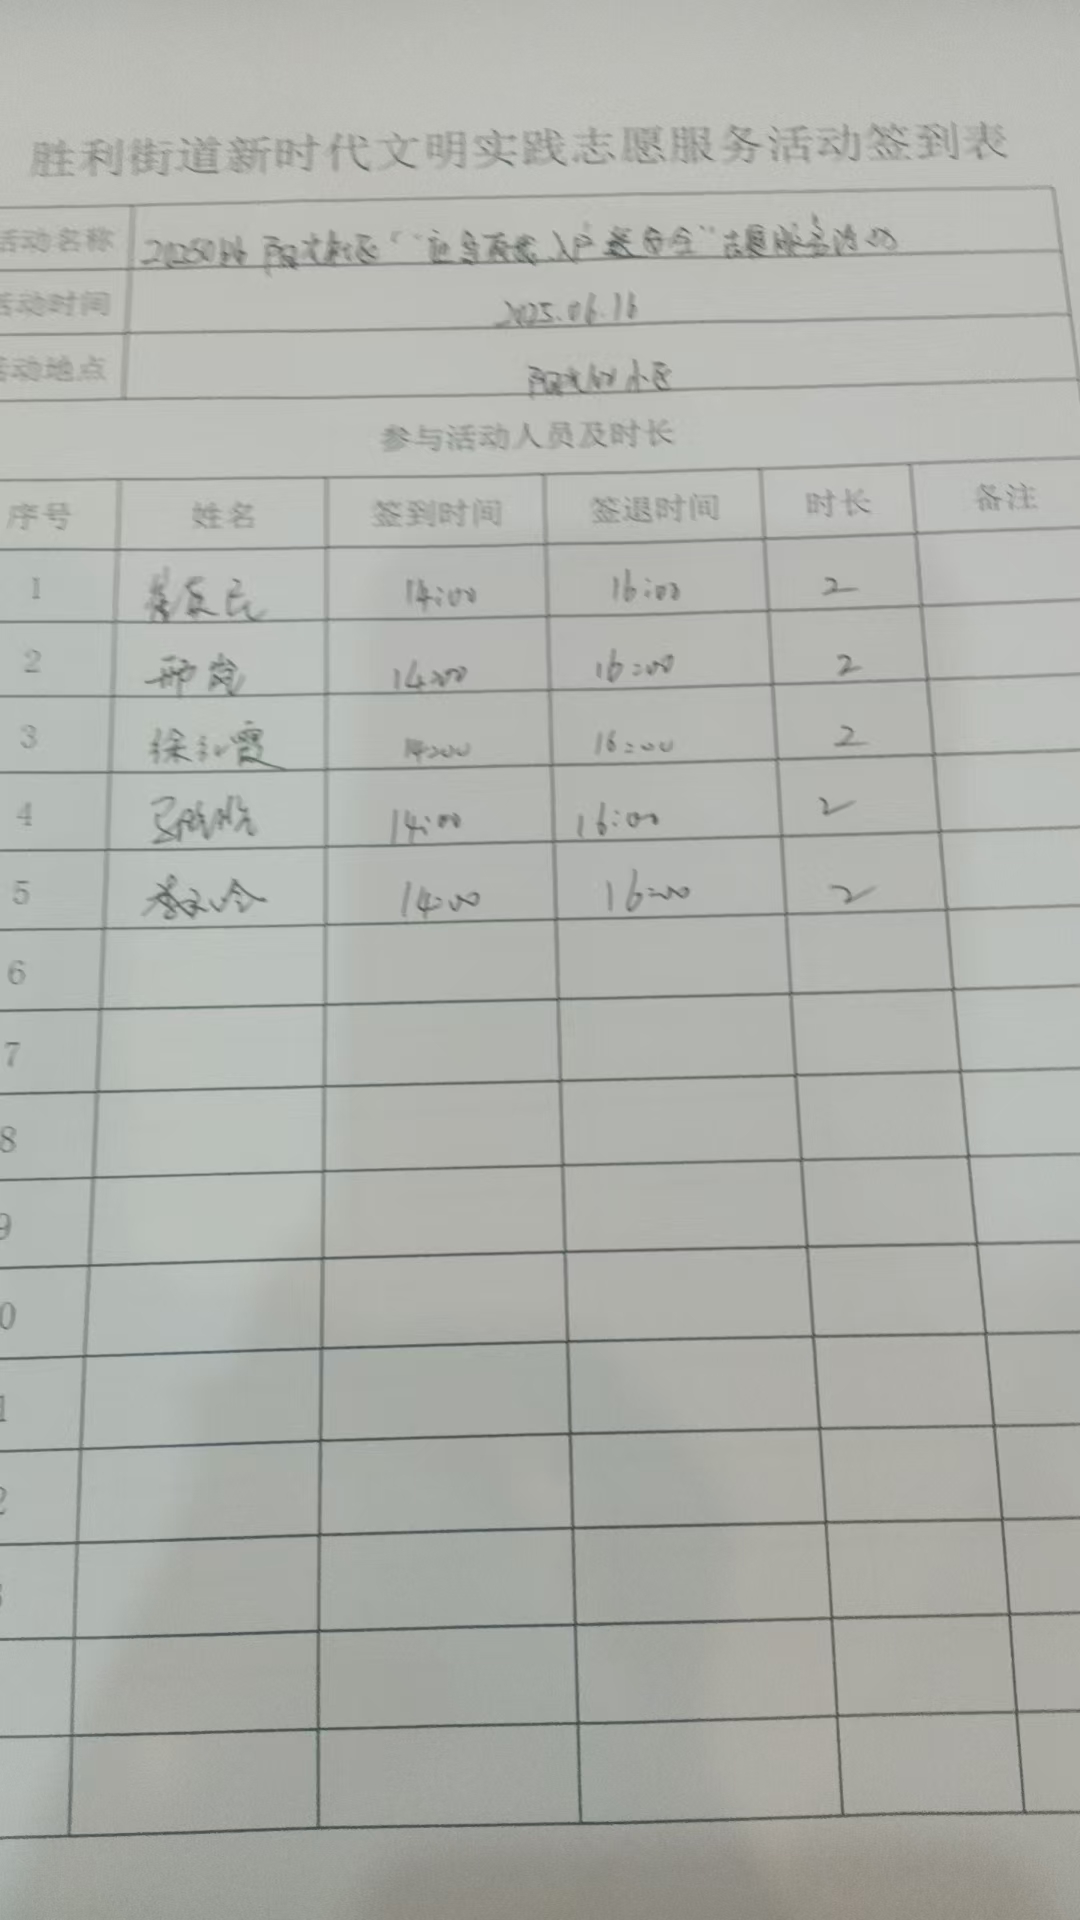 胜利街道新时代文明实践志愿服务活动签到表
活动名称 20250616 阳光社区“应急 入户送安全”志愿服务活动
活动时间 2025.06.16
活动地点 阳光 小区
参与活动人员及时长
序号 姓名 签到时间 签退时间 时长 备注
1 14:00 16:00 2
2 邢岚 14:00 16:00 2
3 徐红霞 14:00 16:00 2
4 14:00 16:00 2
5 14:00 16:00 2
6
7
8
9
0
1
2